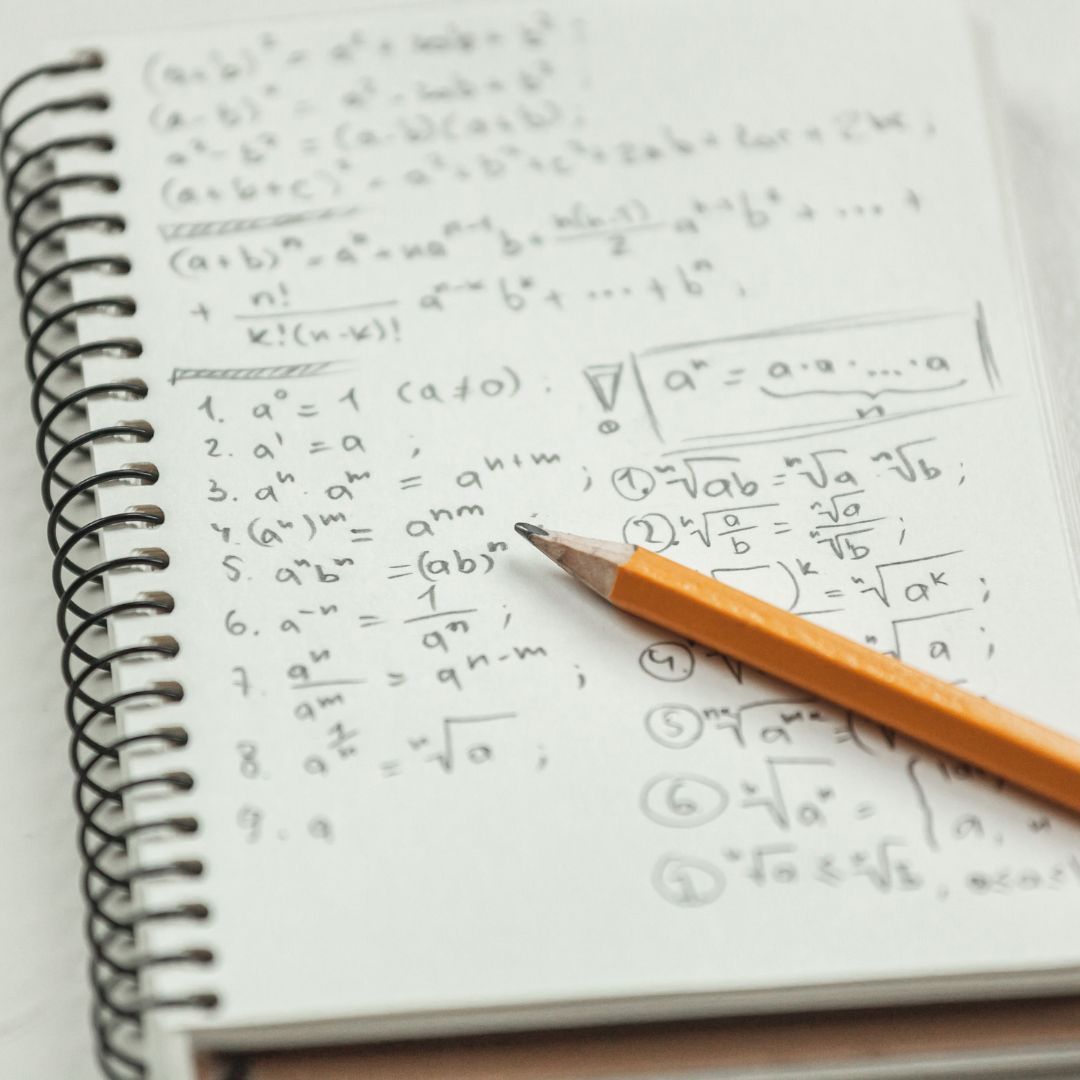 (a+b)² = a² + 2ab + b² ;
(a-b)² = a² - 2ab + b²
a² - b² = (a-b)(a+b) ;
(a+b+c)² = a² + b² + c² + 2ab + 2ac + 2bc ;
(a+b)ⁿ = aⁿ + naⁿ⁻¹b + n(n-1)/2 aⁿ⁻²b² + ... +
+ n!/k!(n-k)! aⁿ⁻ᵏ bᵏ + ... + bⁿ ;
aⁿ = a·a·...·a
n
1. a⁰ = 1 (a≠0) ;
2. a¹ = a ;
3. aⁿ · aᵐ = aⁿ⁺ᵐ ;
4. (aⁿ)ᵐ = aⁿᵐ ;
5. aⁿbⁿ = (ab)ⁿ
6. a⁻ⁿ = 1/aⁿ ;
7. aⁿ/aᵐ = aⁿ⁻ᵐ ;
8. a^(1/n) = ⁿ√a ;
9. a
① ⁿ√ab = ⁿ√a · ⁿ√b ;
② ⁿ√(a/b) = ⁿ√a/ⁿ√b ;
)ᵏ = ⁿ√aᵏ ;
④ √a ;
⑤
⑥ ⁿ√aⁿ = {
a,